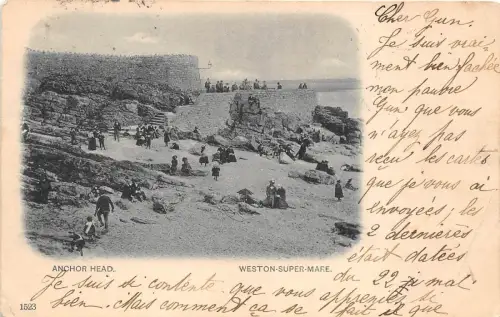 Cher Gun.
Je suis vrai-
ment bien fachée
mon pauvre
Gun que vous
n'ayez pas
recu les cartes
que je vous ai
envoyées; les
2 dernières
était datées
du 22
ANCHOR HEAD.
WESTON-SUPER-MARE.
Je suis si contente que vous appreniez si
bien. Mais comment ça se fait il que
1523